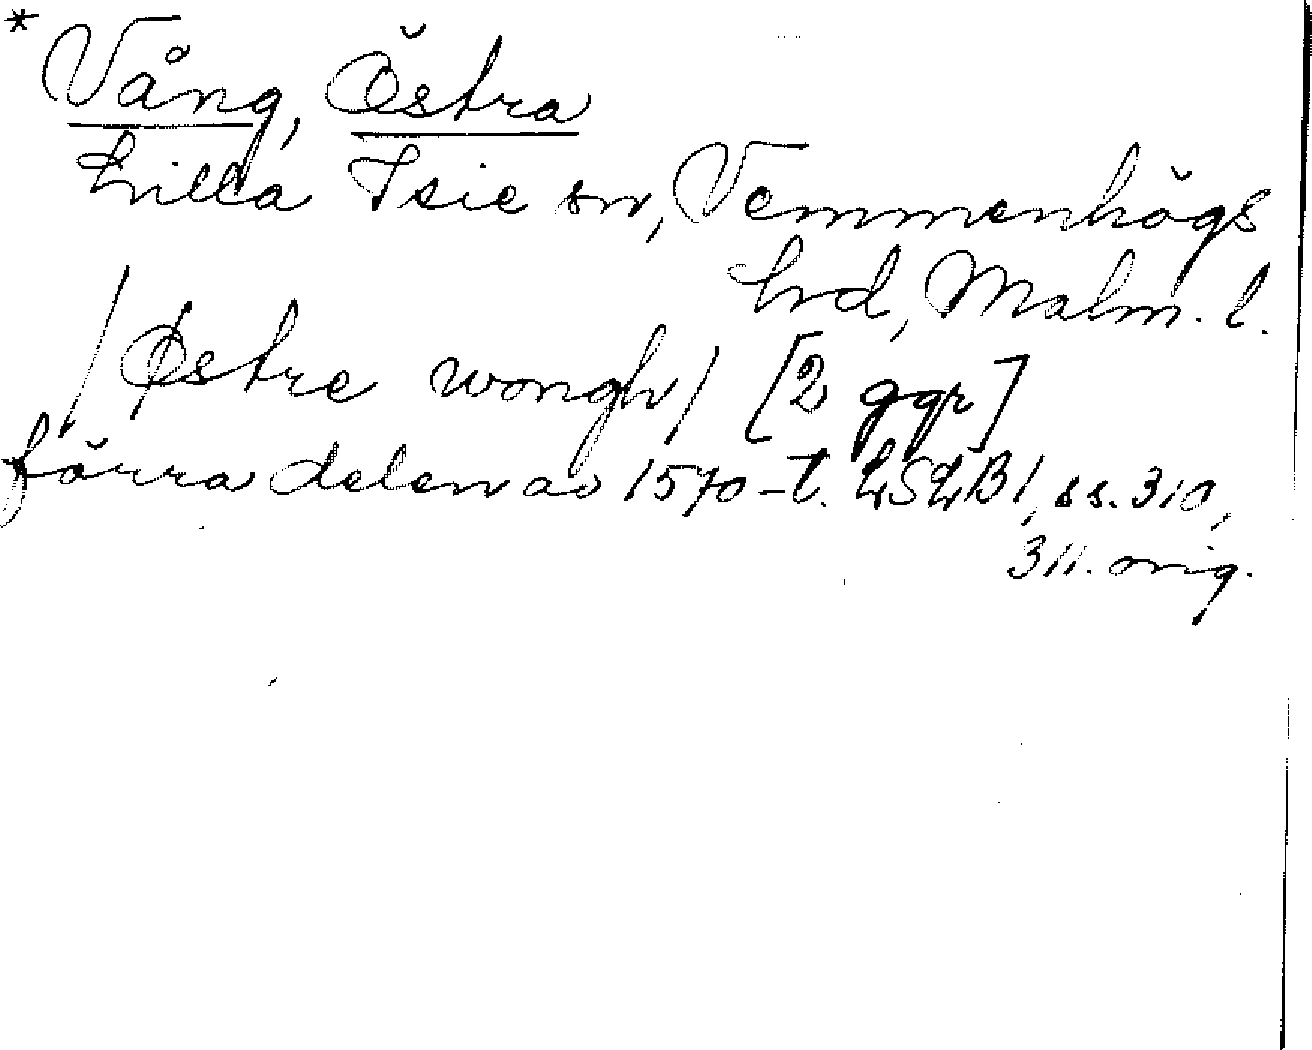 * Vång, Östra
Lilla Isie sn, Vemmenhögs
hrd, Malm. l.
/Østre wongh/ [2 ggr]
förra delen av 1570-t. LSLB I, ss. 310,
311. orig.